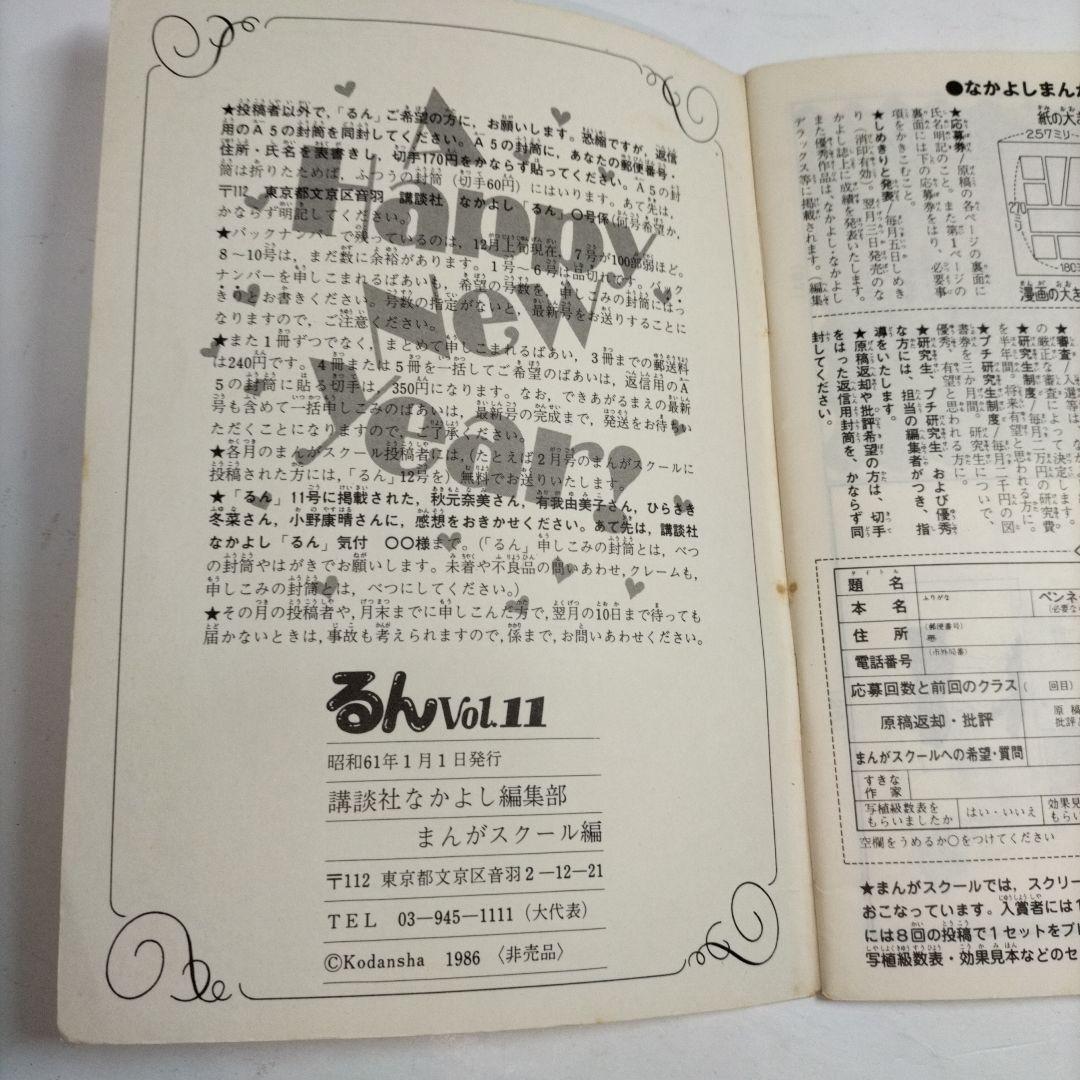 A
Happy
New
Year!
★投稿者以外で，「るん」ご希望の方に，お願いします。恐縮ですが，返信
用のA5の封筒を同封してください。A5の封筒に，あなたの郵便番号・
住所・氏名を表書きし，切手170円をかならず貼ってください。A5の封
筒は折りたためば，ふつうの封筒（切手60円）にはいります。あて先は，
〒112 東京都文京区音羽 講談社 なかよし「るん」○号係（何号希望か，
かならず明記してください。）
★バックナンバーで残っているのは，12月上旬現在，7号が100部弱ほど。
8～10号は，まだ数に余裕があります。1号～6号は品切れです。バック
ナンバーを申しこまれるばあいも，希望の号数を，申しこみの封筒にはっ
きりとお書きください。号数の指定がないと，最新号をお送りすることに
なりますので，ご注意ください。
★また1冊ずつでなく，まとめて申しこまれるばあい，3冊までの郵送料
は240円です。4冊または5冊を一括してご希望のばあいは，返信用のA
5の封筒に貼る切手は，350円になります。なお，できあがるまえの最新
号も含めて一括申しこみのばあいは，最新号の完成まで，発送をお待ちい
ただくことになりますので，ご了承ください。
★各月のまんがスクール投稿者には，（たとえば2月号のまんがスクールに
投稿された方には，「るん」12号を）無料でお送りいたします。
★「るん」11号に掲載された，秋元奈美さん，有我由美子さん，ひらさき
冬菜さん，小野康晴さんに，感想をおきかせください。あて先は，講談社
なかよし「るん」気付 ○○様まで。（「るん」申しこみの封筒とは，べつ
の封筒やはがきでお願いします。未着や不良品の問いあわせ，クレームも，
申しこみの封筒とは，べつにしてください。）
★その月の投稿者や，月末までに申しこんだ方で，翌月の10日まで待っても
届かないときは，事故も考えられますので，係まで，お問いあわせください。
るんVol.11
昭和61年1月1日発行
講談社なかよし編集部
まんがスクール編
〒112 東京都文京区音羽2―12―21
TEL 03―945―1111（大代表）
©Kodansha 1986 〈非売品〉
●なかよしまんが
紙の大き
257ミリ
270ミリ
180
漫画の大き
★応募券／原稿の各ページの裏面に
氏名明記のこと。また第1ページの
裏面には下の応募券をはり，必要事
項をかきこむこと。
★しめきりと発表／毎月五日しめき
り（消印有効）。翌月三日発売のな
かよし誌上に成績を発表いたします。
また優秀作品は，なかよし・なかよし
デラックス等に掲載されます。（編集
★審査／入選等は，
の厳正な審査によって決定します。
★研究生制度／毎月一万円の研究費
を半年間。将来有望と思われる方に。
★プチ研究生制度／毎月二千円の図
書券を三か月間。研究生についで，
優秀，有望と思われる方に。
★研究生，プチ研究生，および優秀
な方には，担当の編集者がつき，指
導をいたします。
★原稿返却や批評希望の方は，切手
をはった返信用封筒を，かならず同
封してください。
題名
タイトル
本名
ふりがな
ペンネ
（必要な
住所
（郵便番号）
〒
電話番号
（市外局番）
応募回数と前回のクラス
（ 回目）
原稿返却・批評
原稿
批評
まんがスクールへの希望・質問
すきな
作家
写植級数表を
もらいましたか
はい・いいえ
効果見
もらい
空欄をうめるか○をつけてください
★まんがスクールでは，スクリー
おこなっています。入賞者には1
には8回の投稿で1セットをプレ
写植級数表・効果見本などのセ